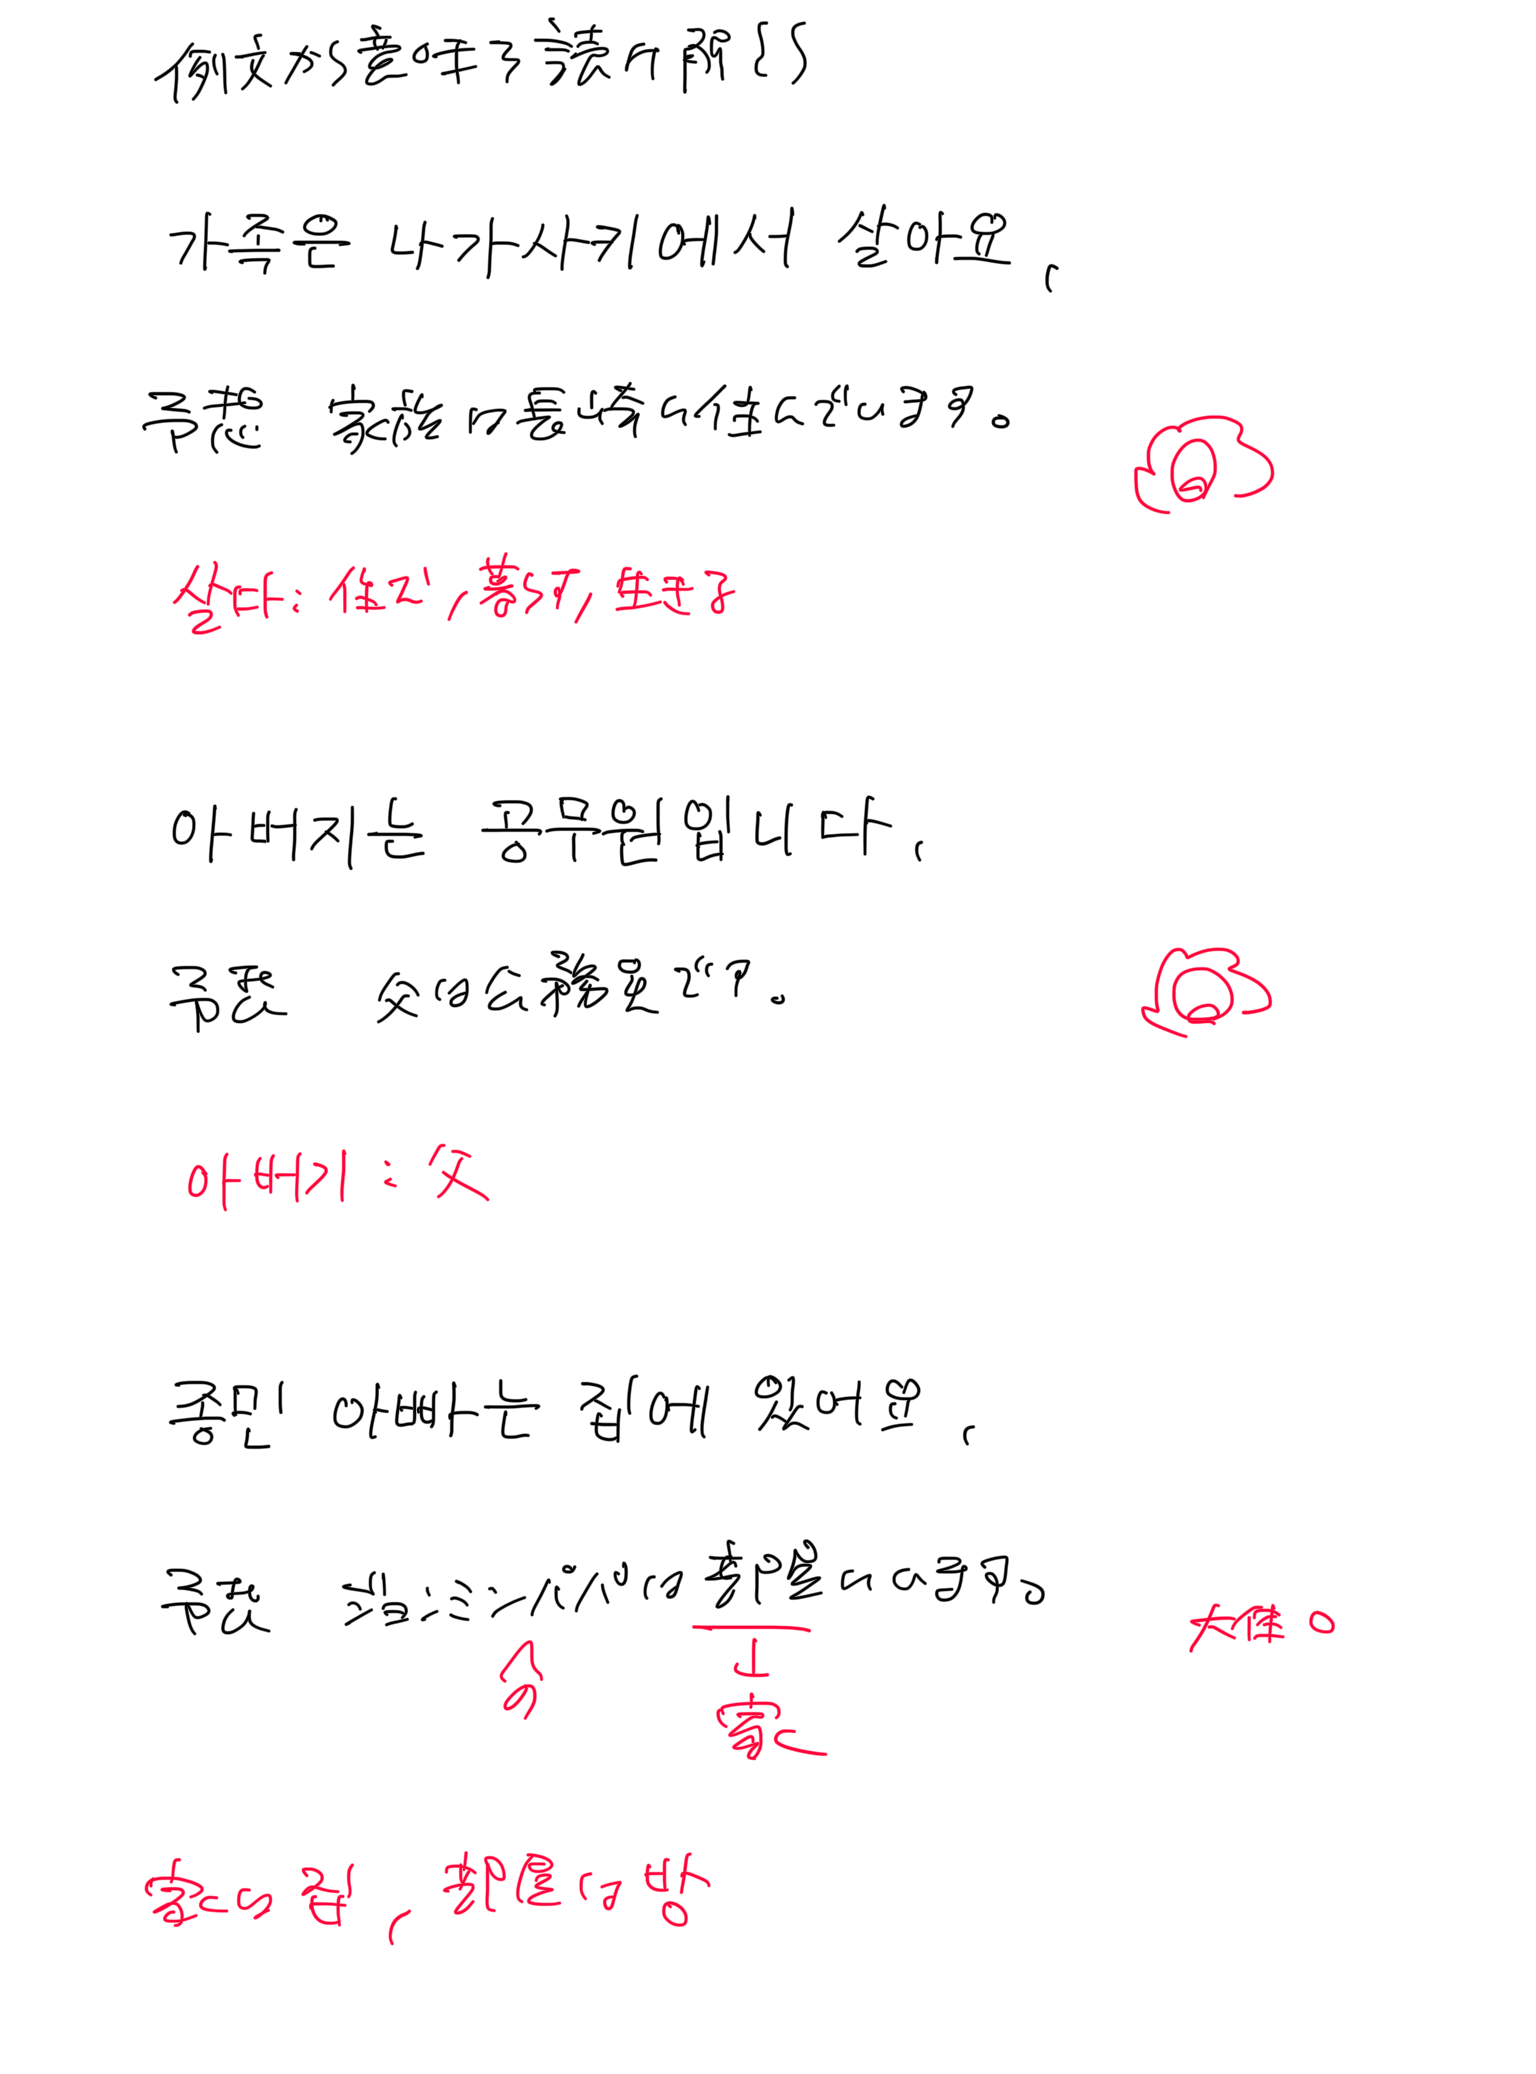 例文から意味を読み解こう
가족은 나가사키에서 살아요.
予想 家族は長崎に住んでいます。
살다: 住む, 暮らす, 生きる
아버지는 공무원입니다.
予想 父は公務員です。
아버지: 父
종민 아빠는 집에 있어요.
予想 ジョンミンパパは部屋にいます。
大体〇
の
↓
家
家は집, 部屋は방